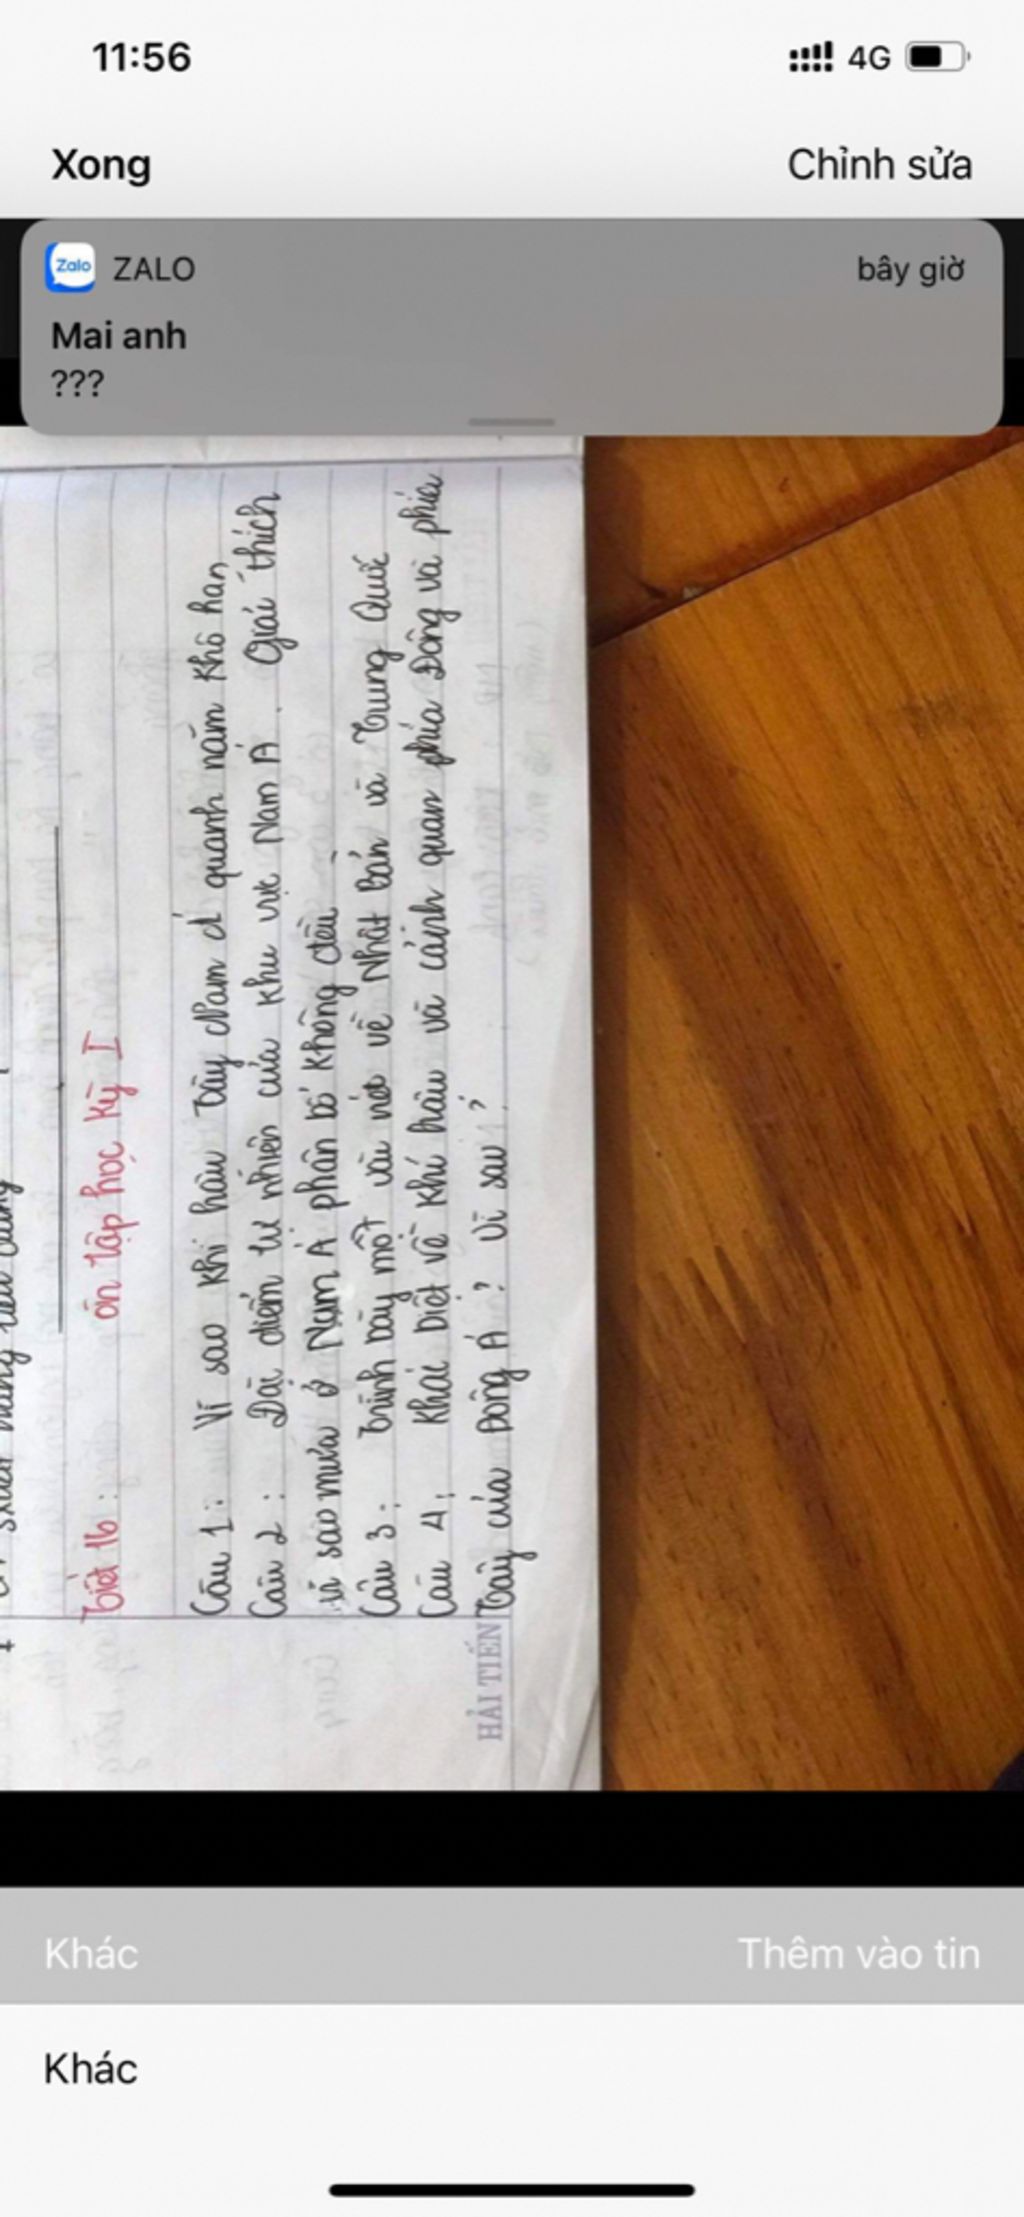 11:56
4G
Xong
Chỉnh sửa
Zalo
ZALO
bây giờ
Mai anh
???
Tiết 16: ôn tập học kỳ I
Câu 1: Vì sao khí hậu Tây Nam Á quanh năm khô hạn
Câu 2: Đặc điểm tự nhiên của khu vực Nam Á. Giải thích
vì sao mưa ở Nam Á phân bố không đều
Câu 3: Trình bày một vài nét về Nhật Bản và Trung Quốc
Câu 4: Khác biệt về khí hậu và cảnh quan phía Đông và phía
Tây của Đông Á? Vì sao?
HẢI TIẾN
Khác
Thêm vào tin
Khác